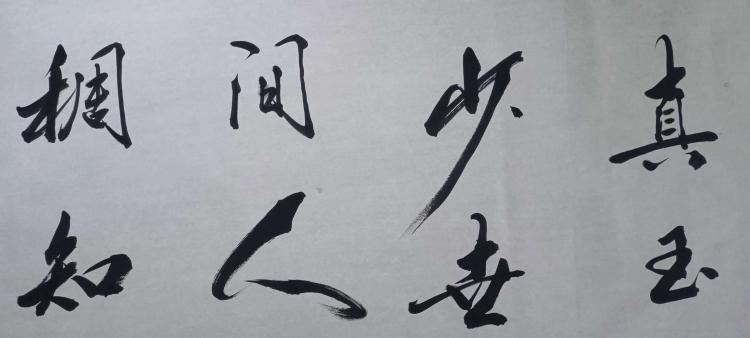 真玉
少世
间人
稠知